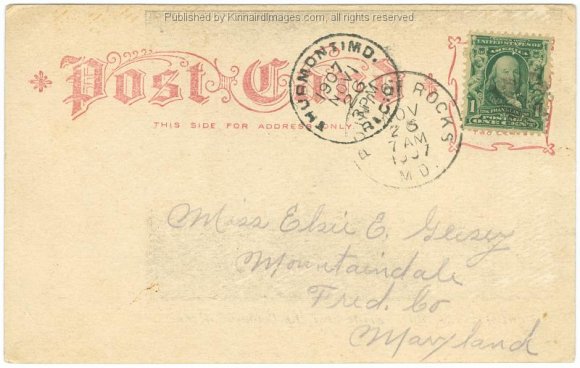 Published by KinnairdImages.com, all rights reserved
Post Card
THIS SIDE FOR ADDRESS ONLY
THURMONT MD.
1907
NOV
REC'D.
ROCKS
NOV
7 AM
1907
MD.
1
Miss Elsie E. Geesey
Mountaindale
Fred. Co
Maryland